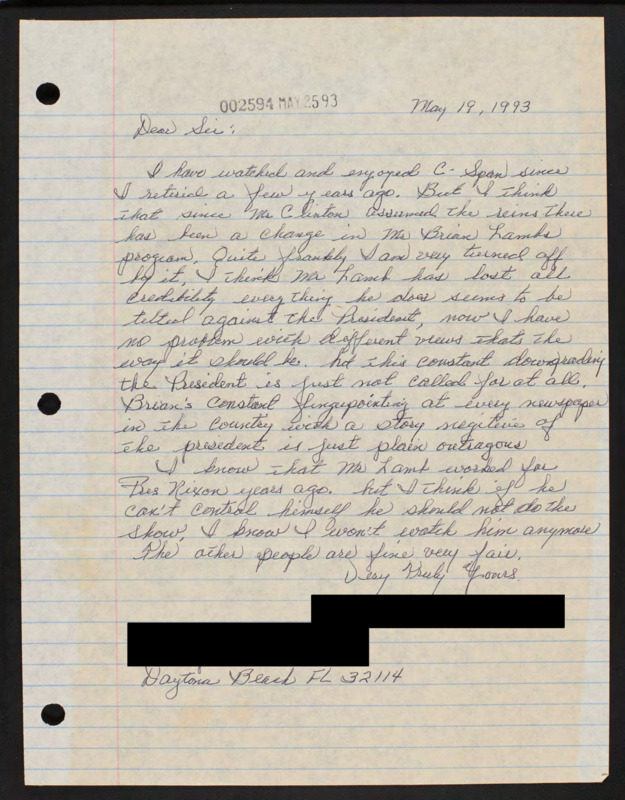 002594 MAY 25 93
May 19, 1993
Dear Sir:
I have watched and enjoyed C-Span since
I retired a few years ago. But I think
that since Mr Clinton assumed the reins there
has been a change in Mr Brian Lambs
program. Quite frankly I am very turned off
by it, I think Mr Lamb has lost all
credibility everything he does seems to be
tilted against the President, now I have
no problem with different views thats the
way it should be. but this constant downgrading
the President is just not called for at all.
Brian's constant fingerpointing at every newspaper
in the country with a story negitive of
the president is just plain outragous
I know that Mr Lamb worked for
Pres Nixon years ago. but I think if he
can't control himself he should not do the
show, I know I won't watch him anymore
The other people are fine very fair.
Very Truly Yours
Daytona Beach FL 32114